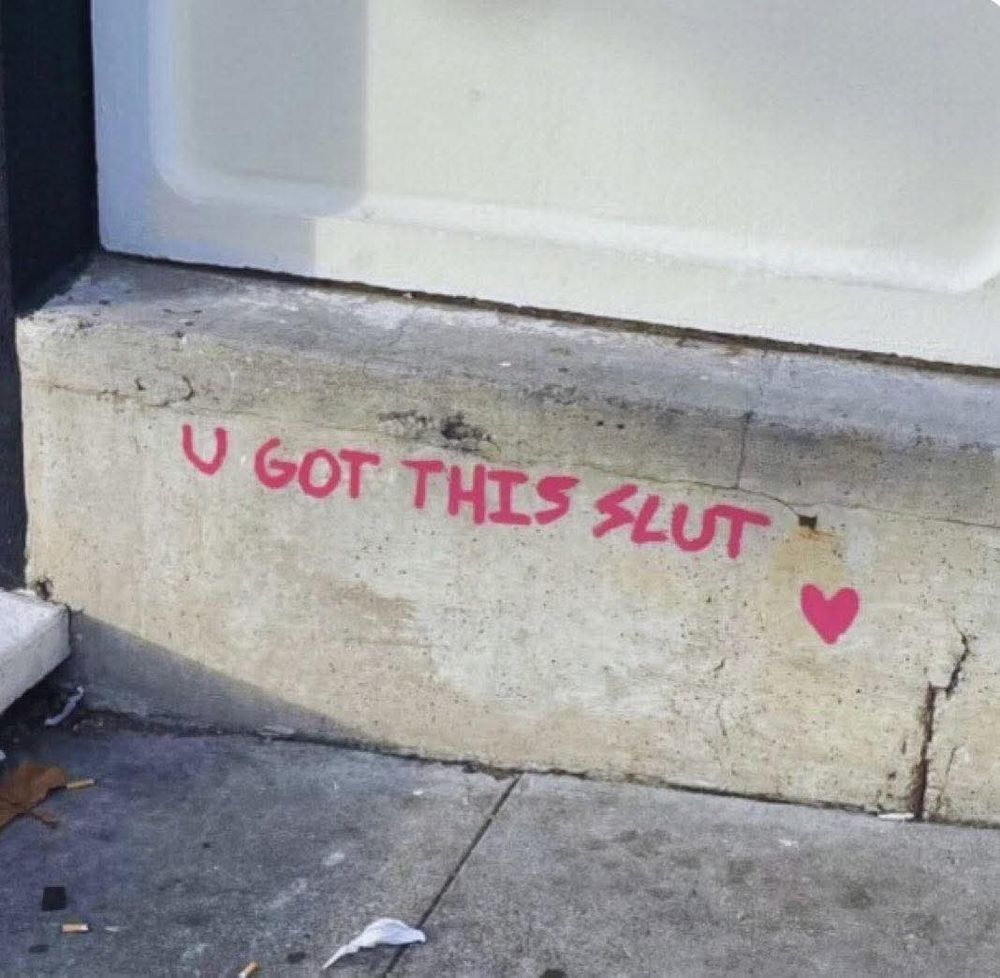 U GOT THIS SLUT